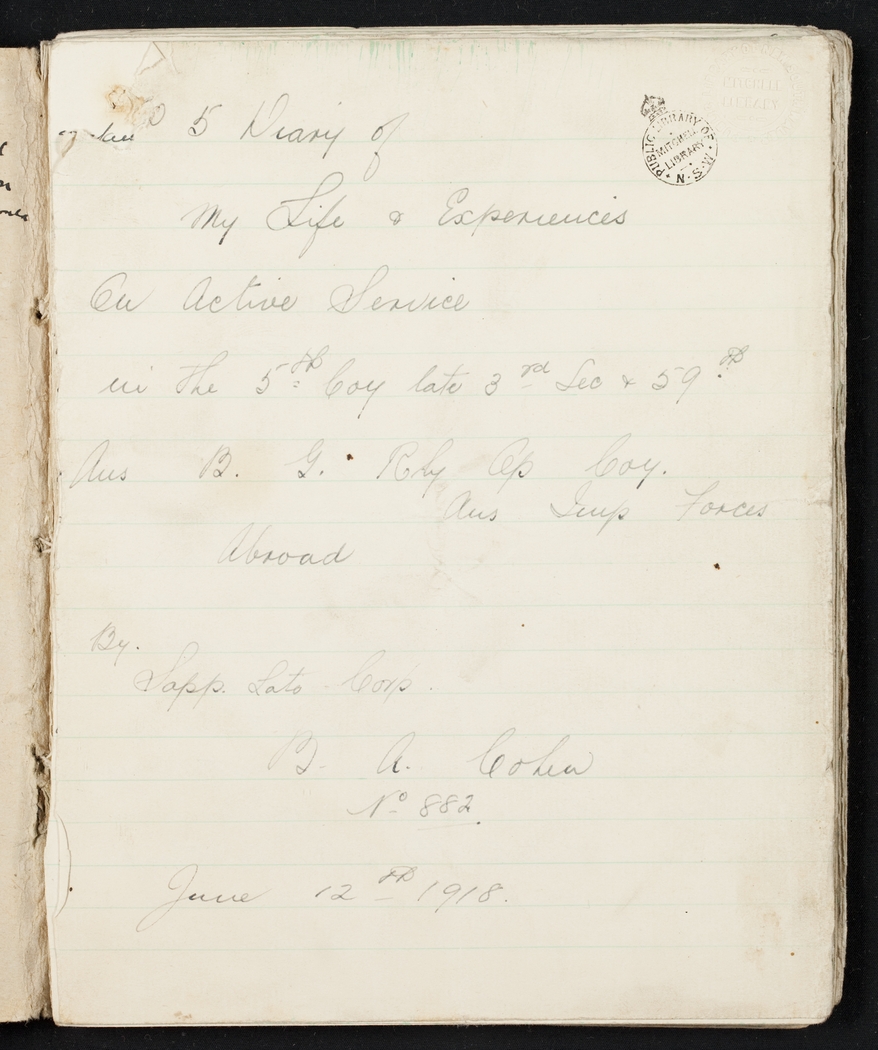 5 Diary of
My Life & Experiences
On Active Service
in the 5th Coy late 3rd Sec & 59th
Aus B. G. Rly Op Coy.
Aus Imp Forces
Abroad
By.
Sapp. Late Corp.
B. A. Cohen
No 882.
June 12th 1918.
PUBLIC LIBRARY OF N.S.W.
MITCHELL
LIBRARY